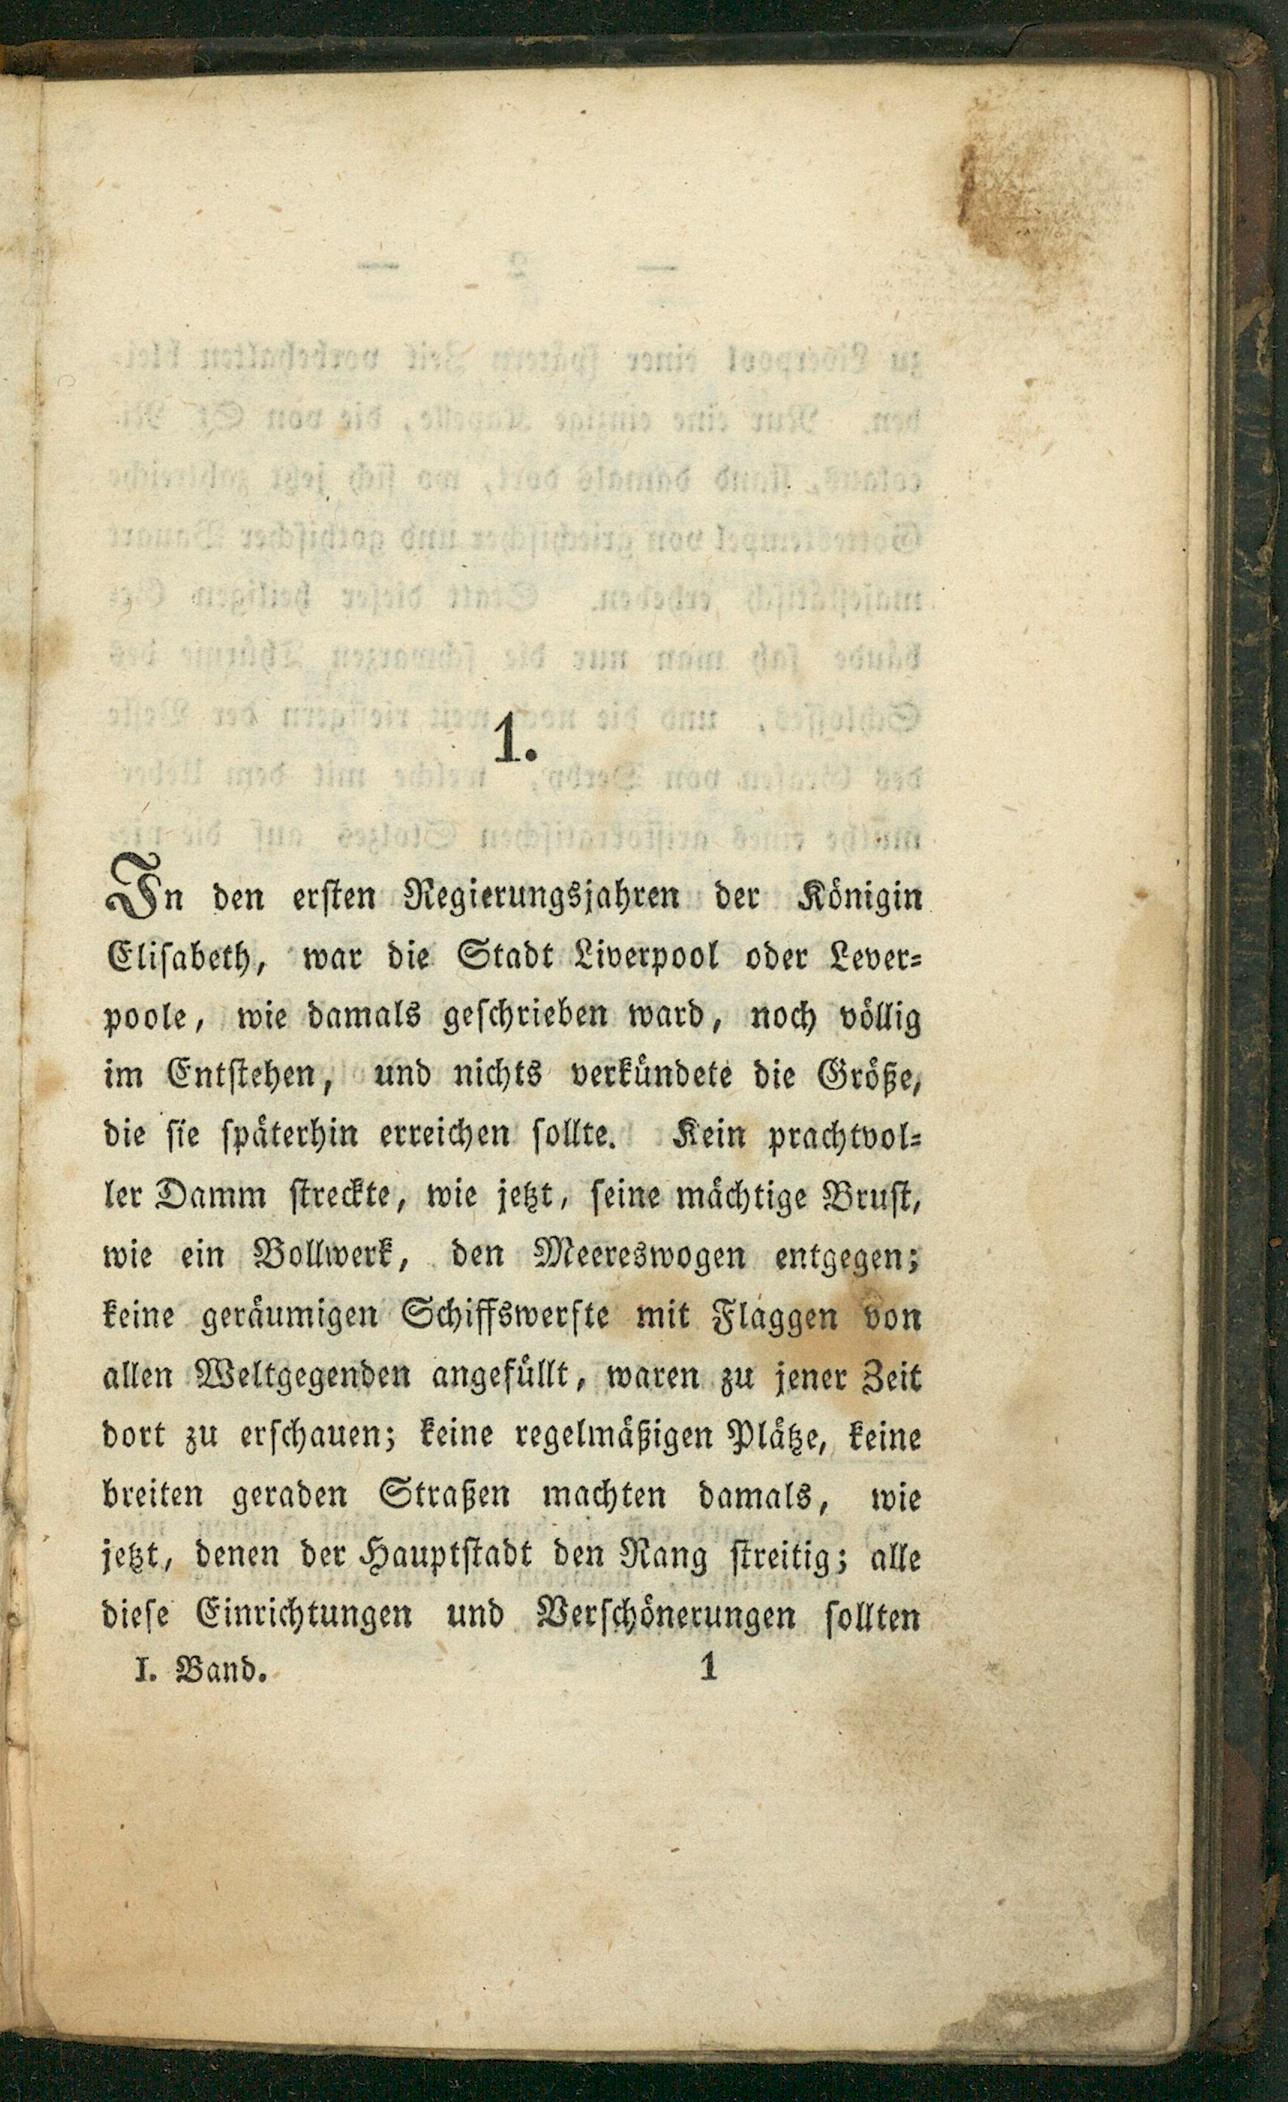 1.
In den ersten Regierungsjahren der Königin
Elisabeth, war die Stadt Liverpool oder Lever=
poole, wie damals geschrieben ward, noch völlig
im Entstehen, und nichts verkündete die Größe,
die sie späterhin erreichen sollte. Kein prachtvol=
ler Damm streckte, wie jetzt, seine mächtige Brust,
wie ein Bollwerk, den Meereswogen entgegen;
keine geräumigen Schiffswerfte mit Flaggen von
allen Weltgegenden angefüllt, waren zu jener Zeit
dort zu erschauen; keine regelmäßigen Plätze, keine
breiten geraden Straßen machten damals, wie
jetzt, denen der Hauptstadt den Rang streitig; alle
diese Einrichtungen und Verschönerungen sollten
I. Band. 1